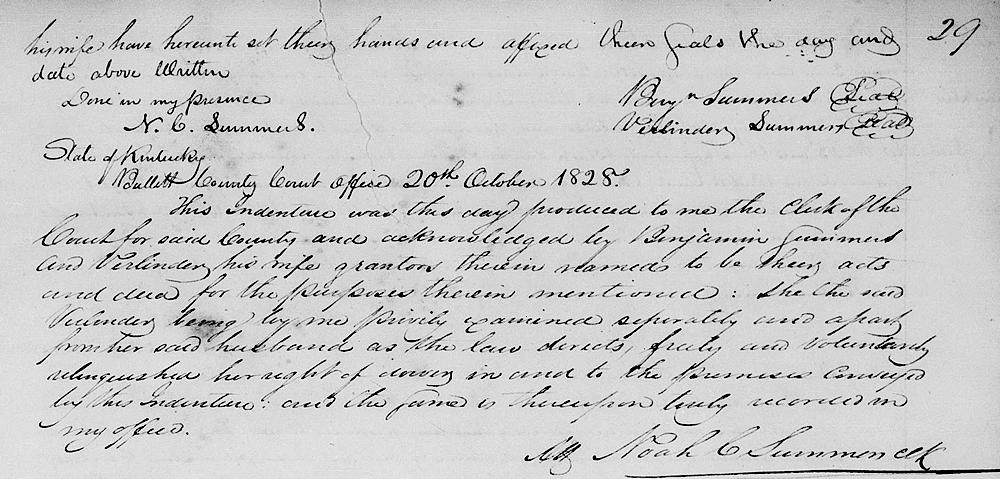 29
his wife have hereunto set their hands and affixed their seals the day and
date above Written
Done in my presence
N. C. Summers.
Benjn Summers (Seal)
Verlinder Summers (Seal)
State of Kentucky
Bullitt County Court Office 20th October 1828
This Indenture was this day produced to me the Clerk of the
Court for said County and acknowledged by Benjamin Summers
and Verlinder his wife grantors therein named to be their acts
and deed for the purposes therein mentioned: She the said
Verlinder being by me privily examined seperately and apart
from her said husband as the law directs, freely and voluntarily
relinquished her right of dower in and to the premises conveyed
by this Indenture: and the same is thereupon truly recorded in
my office.
Att Noah C Summers clk